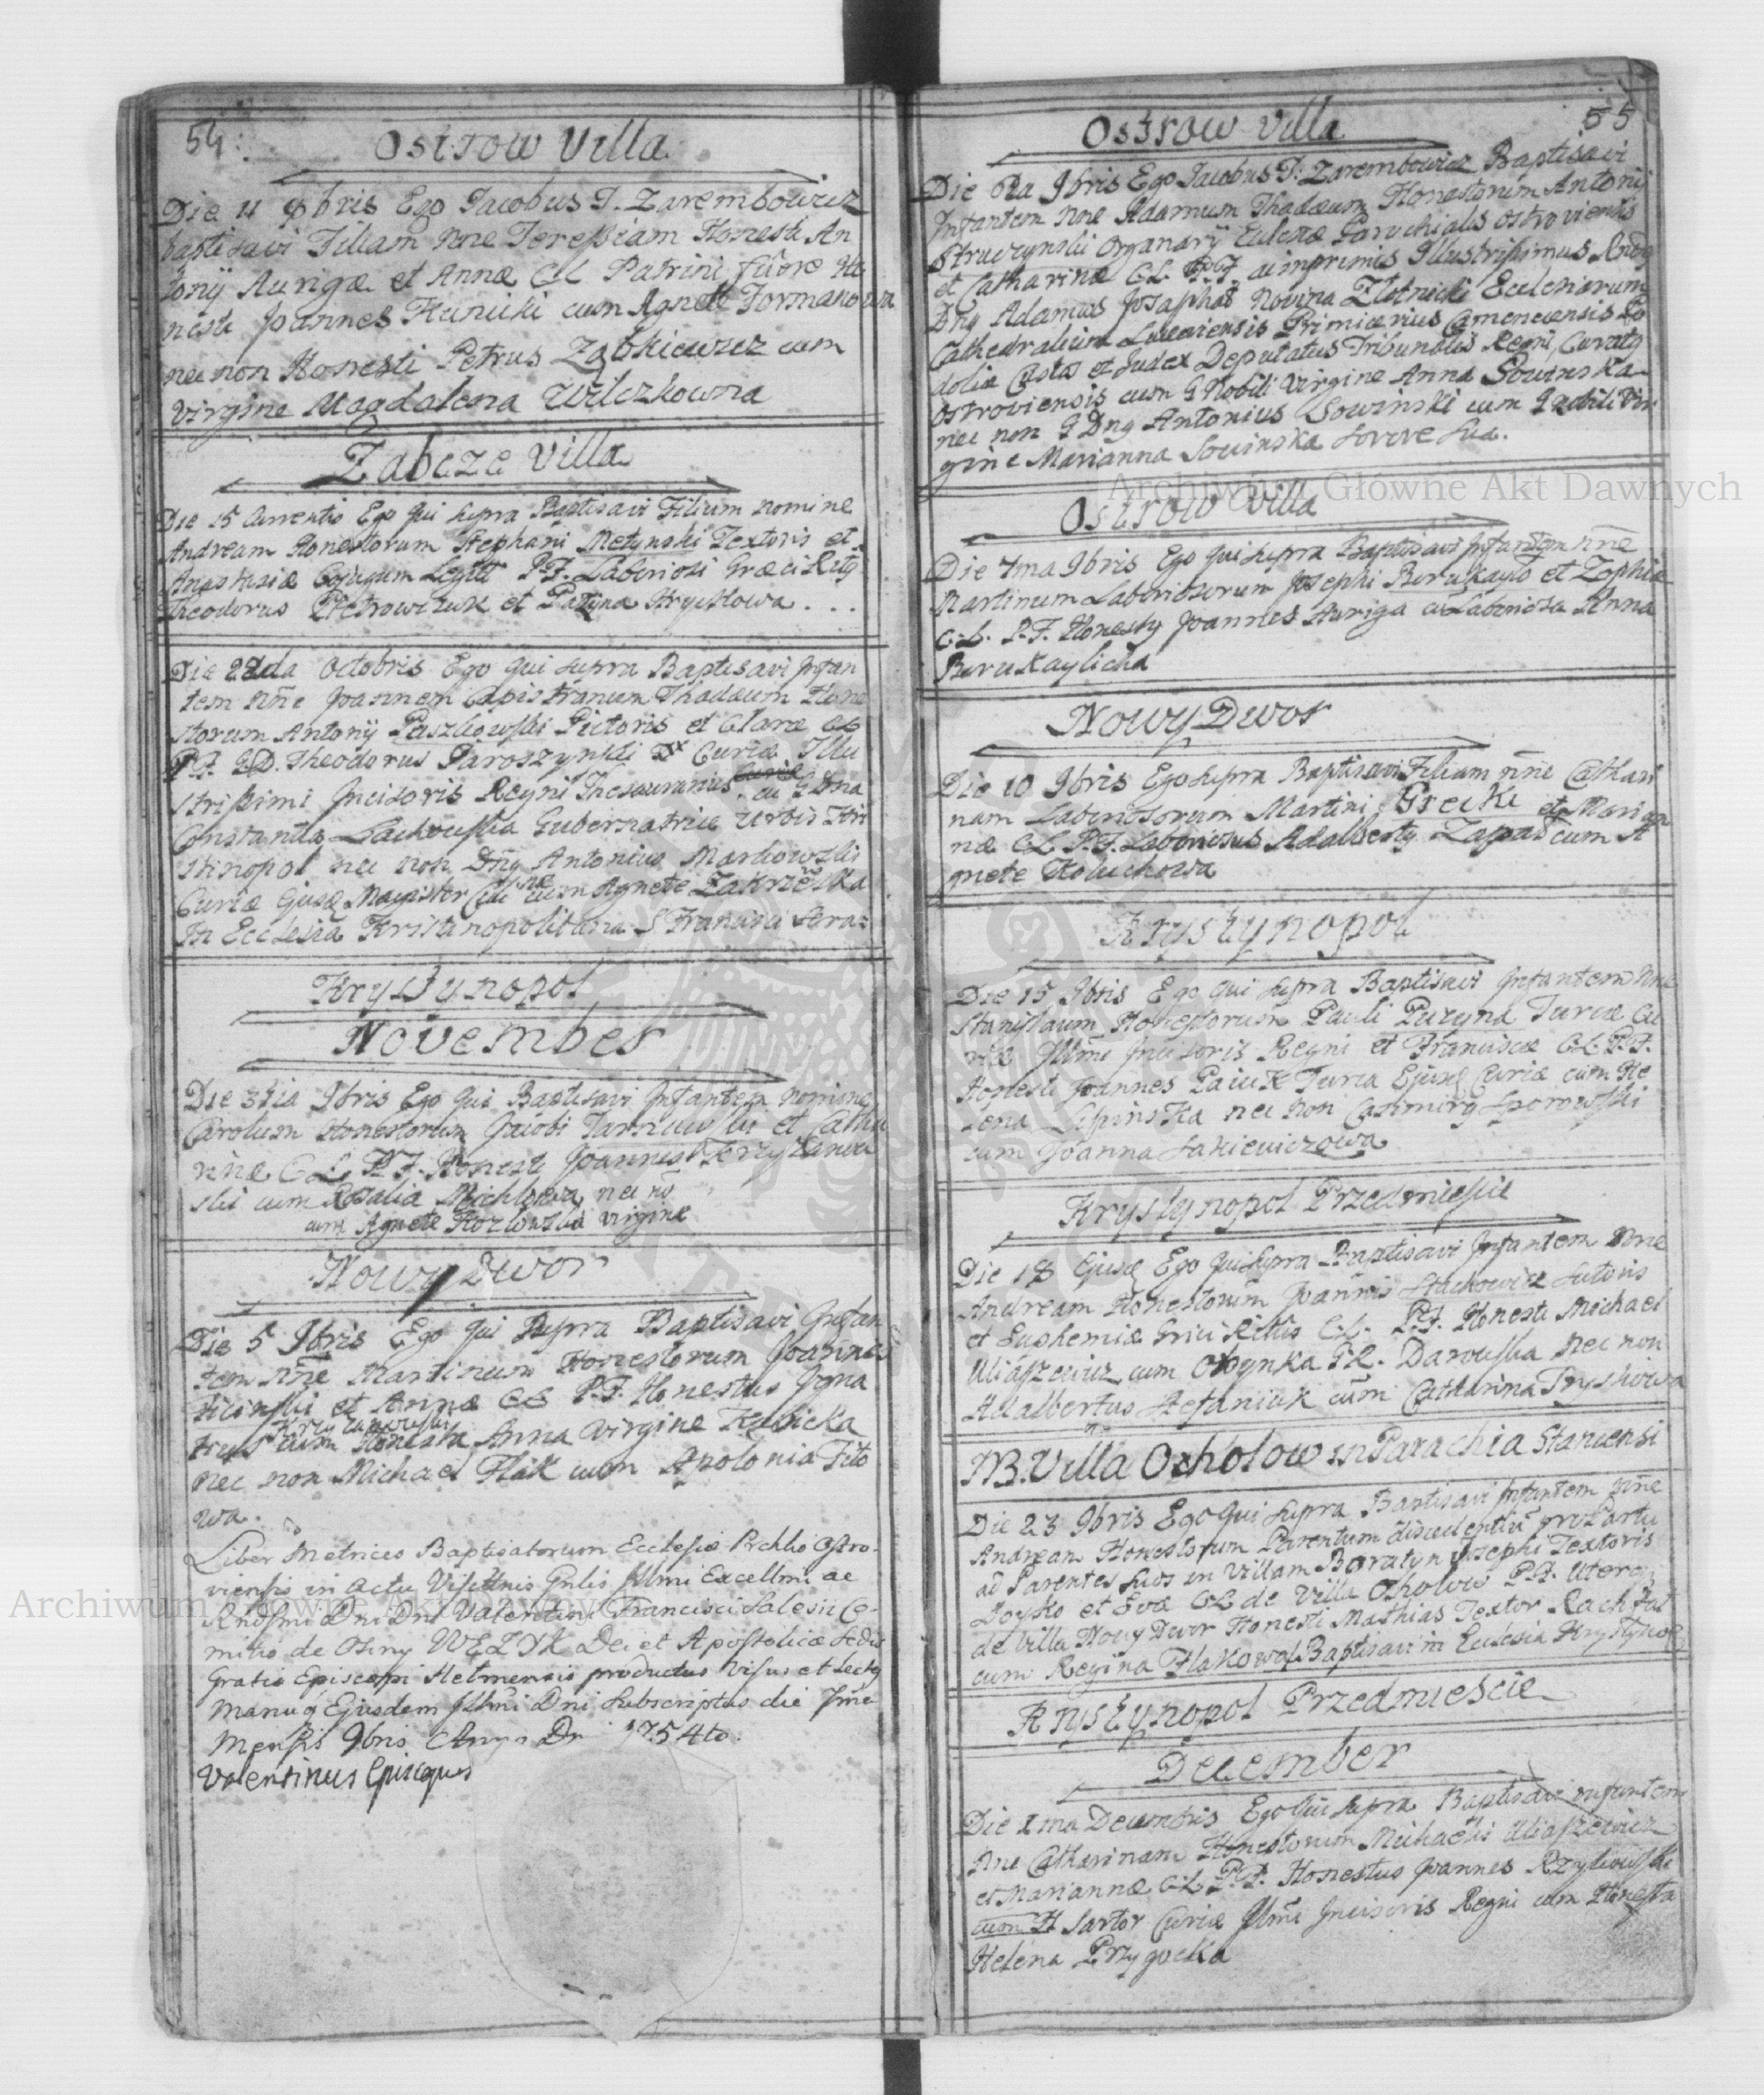 54
Ostrow Villa
Die 11 8bris Ego Jacobus T. Zarembowicz
baptisavi Filiam nne Teressiam Honesti An
tonij Aurigæ et Annæ CL Patrini fuêre Ho
nesti Joannes Kunicki cum Agnete Formanowa
nec non Honesti Petrus Ząbkiewicz cum
Virgine Magdalena Wilczkowna
Zabcze Villa
Die 15 Currentis Ego qui supra Baptisavi Filium nomine
Andream Honestorum Stephani Metynski Textoris et
Anastasiæ Cojugum Legitt P.F. Laboriosi Græci Ritg
Theodorus Pietrowczuk et Tatyna Hrycikowa . . .
Die 22da Octobris Ego qui supra Baptisavi Infan
tem nñe Joannem Capistranum Thadæum Hone
storum Antonij Paszkowski Pictoris et Claræ CL
P.F. G.D. Theodorus Jaroszynski Curiæ Illu
strissimi Incisoris Regni Thesaurarius cu G Dna
Constantia Lachowska Gubernatrice Urbis Kri
stinopol nec non Dng Antonius Markowski
Curiæ Ejusd Magister cum Agnete Zakrzewska
In Ecclesia Kristinopolitana S Francisci Sera:
Krystynopol
November
Die 3tia 9bris Ego Qui Baptisavi Infantem nomine
Carolum Honestorum Jacobi et Catha
rinæ C L. P.F. Honesti Joannes Krzyzanow
ski cum Rosalia nec no
cum Agnete Kozlowska virgine
Nowy Dwor
Die 5 9bris Ego Qui Supra Baptisavi Infan
tem nñe Martinum Honestorum Joannis
Ficinski et Annæ CL P.F. Honestus Igna
Krzyzanowski
tius cum Honesta Anna Virgine Kobicka
nec non Michael Flak cum Apolonia Fito
wa.
Liber Metrices Baptisatorum Ecclesiæ Prchlis Ostro-
viensis in actu Visittnis Gnlis Illmi Excellmi ac
Rndssmi Dni Dni Valentini Francisci Salesii Co-
mitis de Osiny WĘZYK Dei et Apostolicæ Sedis
Gratia Episcopi Helmensis productus visus et lectg
Manu q Ejusdem Illmi Dni Subscriptus die
Mensis 9bris Anno Dn 1754to.
Valentinus Episcopus
55
Ostrow Villa
Die 9bris Ego Jacobus T. Zarembowicz Baptisavi
Infantem nne Adamum Thadæum Honestorum Antonij
Struczynski Organarij Eccleæ Parochialis Ostroviensis
et Catharinæ C.L. P.F. ac inprimis Illustrissimus Rndg
Dng Adamus Josaphat Nowina Zlotnicki Ecclesiarum
Cathedralium Luceoriensis Primicerius Camenecensis Po
doliæ Custos et Judex Deputatus Tribunalis Regni, Curatg
Ostroviensis cum G Nobili Virgine Anna Sowinska
nec non G Dng Antonius Sowinski cum G nobili Vir
gine Marianna Sowinska sorore sua.
Ostrow Villa
Die 7ma 9bris Ego qui supra Baptisavi Infantem nñe
Martinum Laboriosorum Josephi Burukaylo et Zophiæ
C.L. P.F. Honestg Joannes Auriga cu Laboriosa Anna
Burukaylicha
Nowy Dwor
Die 10 9bris Ego supra Baptisavi Filiam nñe Cathari
nam Laboriosorum Martini Grecki et Marian
næ CL P.F. Laboriosus Adalbertg Zapas cum A
gnete Koluchowa
Krystynopol
Die 15 9bris Ego qui supra Baptisavi Infantem nne
Stanislaum Honestorum Pauli Puzyna Turcæ Cu
riæ Illmi Incisoris Regni et Franciscæ C.L. P.F.
Honesti Joannes Paiuk Turca Ejusd Curiæ cum He
lena Lipinska nec non Casimirg Sporowski
cum Joanna Sakiewiczowa
Krystynopol Przedmiescie
Die 18 Ejusd Ego qui supra Baptisavi Infantem nne
Andream Honestorum Joannis Stachowicz Sutoris
et Euphemiæ Græci Ritus C.L. P.F. Honesti Michael
Uliaszewicz cum Ohynka P.R. Darouska nec non
Adalbertus Stefaniuk cum Catharina Tryskowa
NB. Villa Ochotow in Parachia Starcensi
Die 23 9bris Ego Qui supra Baptisavi Infantem nñe
Andream Honestorum Parentum discedentiu pro Partu
ad Parentes suos in Villam Boratyn Josephi Textoris
Doysko et Evæ CL de Villa Ochotow P.F. Uterq
de Villa Nowy Dwor Honesti Mathias Textor
cum Regina Flakowa Baptisavi in Ecclesia Krystynop
Krystynopol Przedmiescie
December
Die 1ma Decembris Ego Qui supra Baptisavi infantem
nne Catharinam Honestorum Michaelis Uliaszewicz
et Mariannæ C.L. P.F. Honestus Joannes Rzyskowski
cum H Sartor Curiæ Illmi Incisoris Regni cum Honesta
Helena Przygocka
Archiwum Główne Akt Dawnych
Archiwum Główne Akt Dawnych